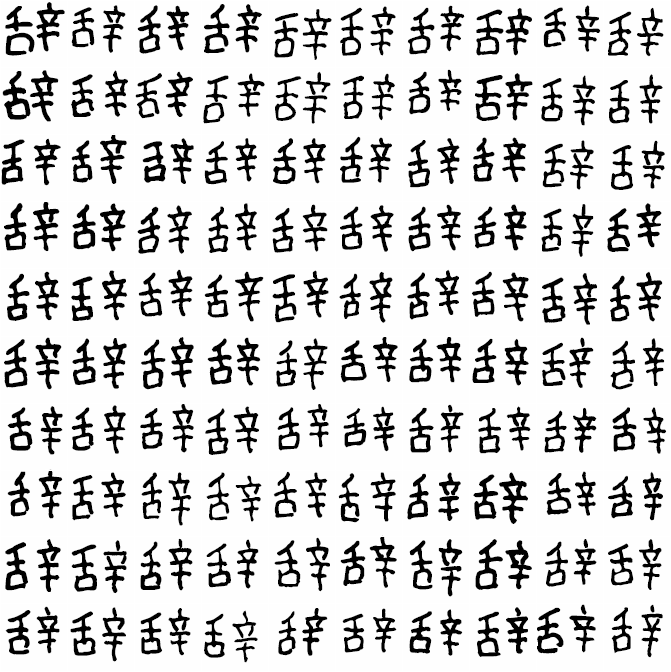 辞辞辞辞辞辞辞辞辞辞
辞辞辞辞辞辞辞辞辞辞
辞辞辞辞辞辞辞辞辞辞
辞辞辞辞辞辞辞辞辞辞
辞辞辞辞辞辞辞辞辞辞
辞辞辞辞辞辞辞辞辞辞
辞辞辞辞辞辞辞辞辞辞
辞辞辞辞辞辞辞辞辞辞
辞辞辞辞辞辞辞辞辞辞
辞辞辞辞辞辞辞辞辞辞